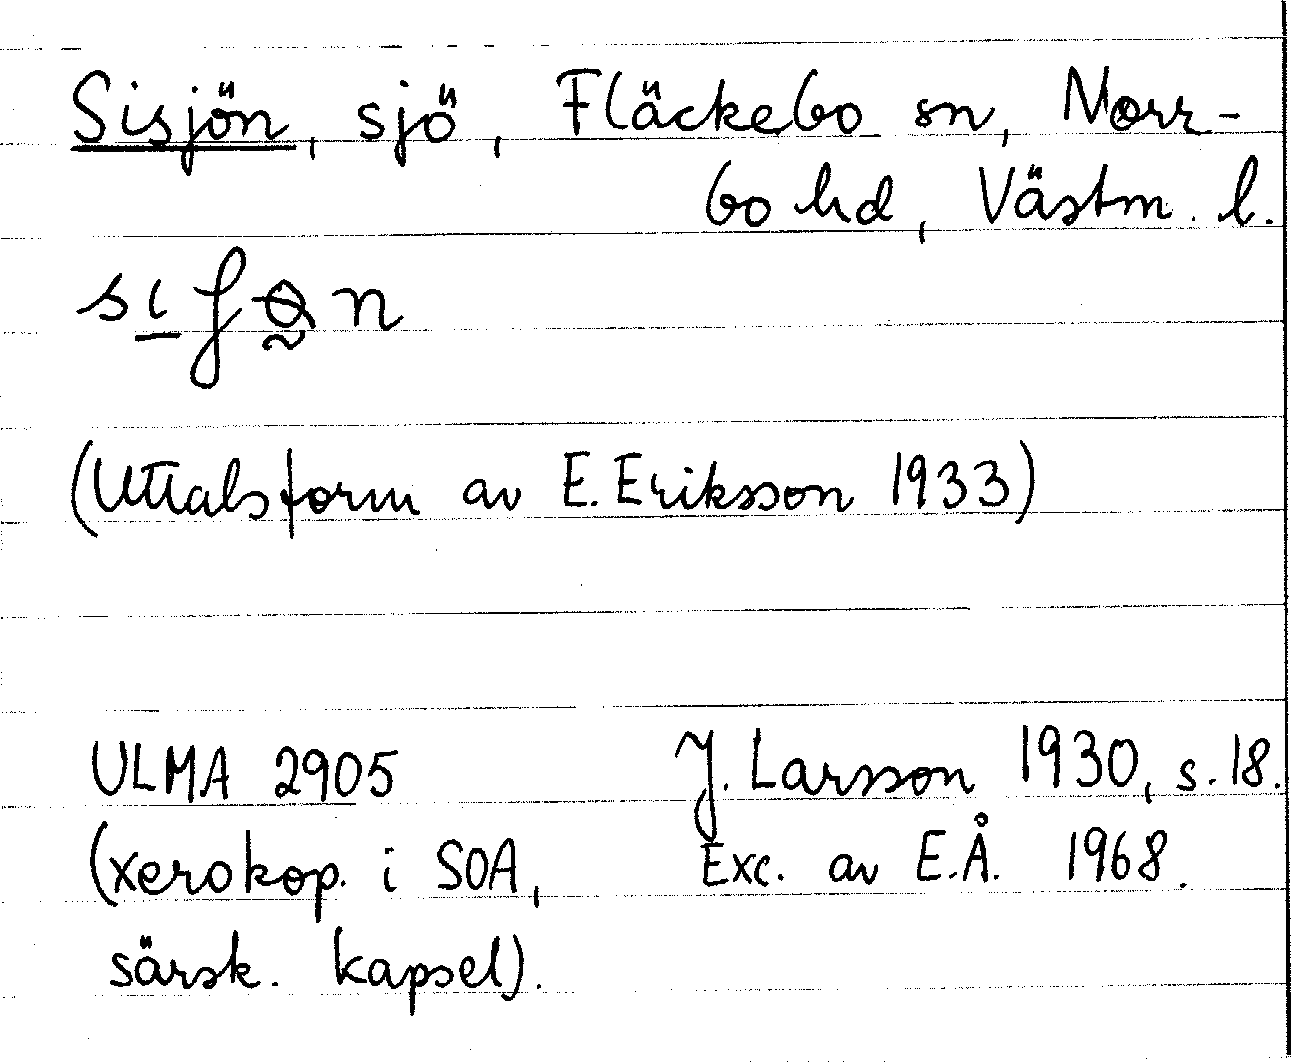 Sisjön, sjö, Fläckebo sn, Norr-
bo hd, Västm. l.
(Uttalsform av E. Eriksson 1933)
ULMA 2905 J. Larsson 1930, s. 18.
(xerokop. i SOA, Exc. av E.Å. 1968.
särsk. kapsel).